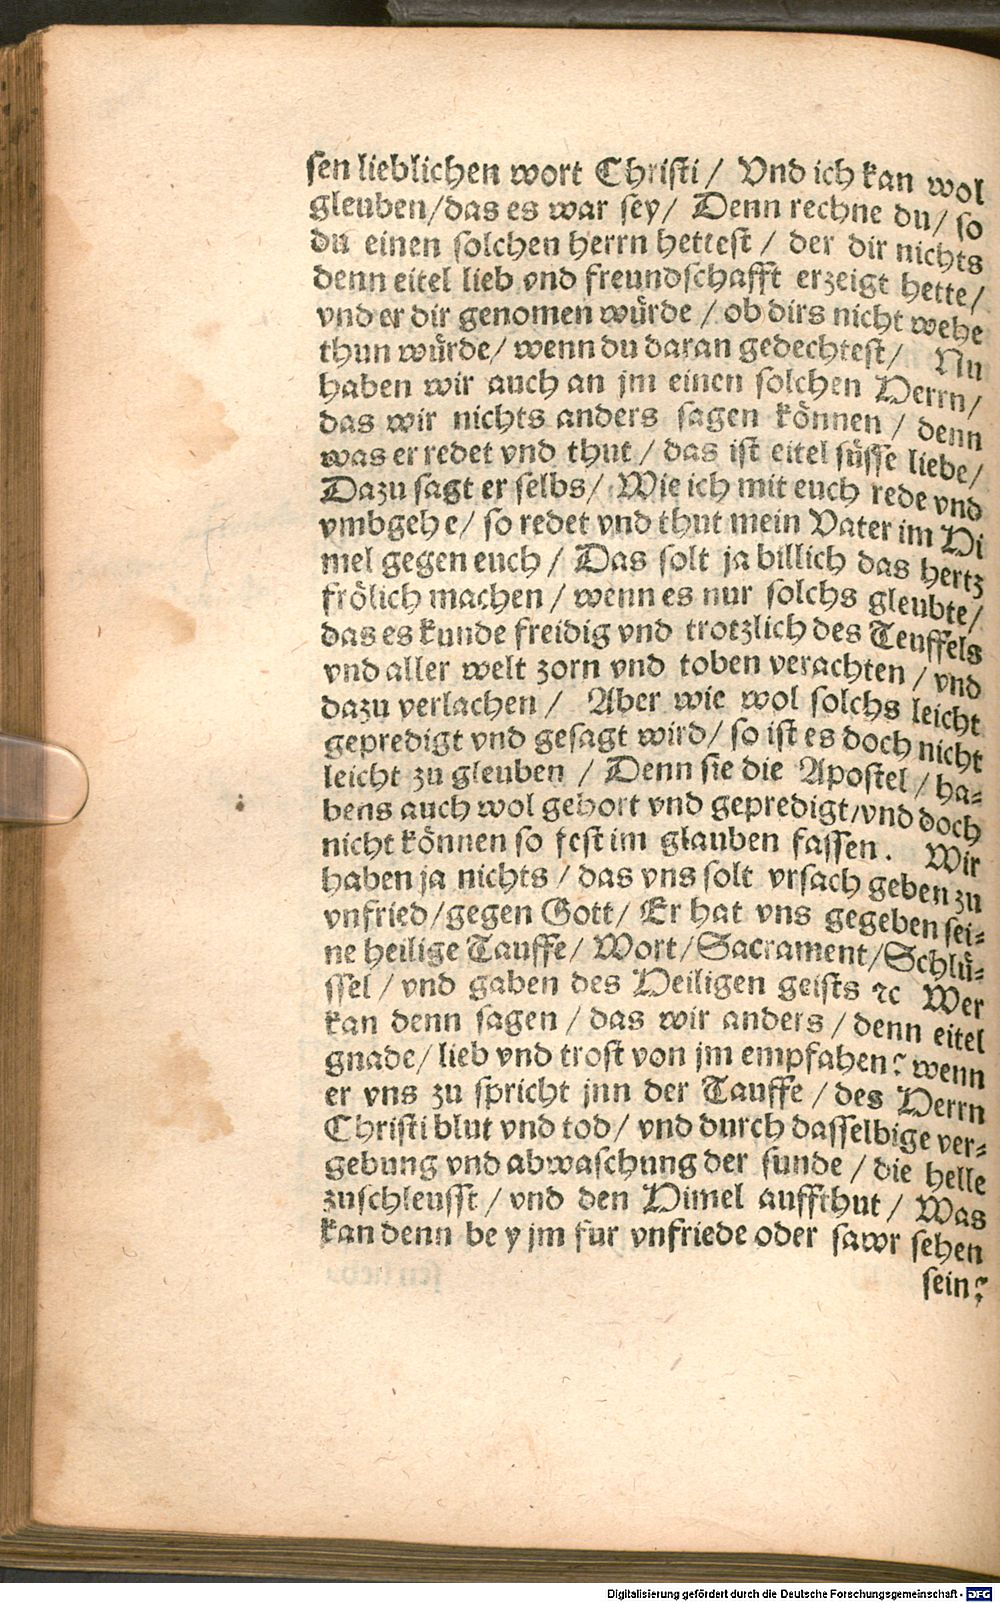 sen lieblichen wort Christi / Vnd ich kan wol
gleuben/das es war sey/ Denn rechne du/ so
du einen solchen herrn hettest / der dir nichts
denn eitel lieb vnd freundschafft erzeigt hette/
vnd er dir genomen würde / ob dirs nicht wehe
thun würde/ wenn du daran gedechtest/ Nu
haben wir auch an jm einen solchen Herrn/
das wir nichts anders sagen können / denn
was er redet vnd thut / das ist eitel süsse liebe/
Dazu sagt er selbs/ Wie ich mit euch rede vnd
vmbgehe/ so redet vnd thut mein Vater im Hi
mel gegen euch / Das solt ja billich das hertz
frölich machen / wenn es nur solchs gleubte/
das es kunde freidig vnd trotzlich des Teuffels
vnd aller welt zorn vnd toben verachten / vnd
dazu verlachen / Aber wie wol solchs leicht
gepredigt vnd gesagt wird/ so ist es doch nicht
leicht zu gleuben / Denn sie die Apostel / ha=
bens auch wol gehort vnd gepredigt/vnd doch
nicht können so fest im glauben fassen. Wir
haben ja nichts / das vns solt vrsach geben zu
vnfried/gegen Gott/ Er hat vns gegeben sei=
ne heilige Tauffe/ Wort/Sacrament/Schlü=
ssel / vnd gaben des Heiligen geists ꝛc Wer
kan denn sagen / das wir anders / denn eitel
gnade/ lieb vnd trost von jm empfahen? wenn
er vns zu spricht jnn der Tauffe / des Herrn
Christi blut vnd tod/ vnd durch dasselbige ver=
gebung vnd abwaschung der sunde / die helle
zuschleusst / vnd den Himel auffthut / Was
kan denn bey jm fur vnfriede oder sawr sehen
sein?
Digitalisierung gefördert durch die Deutsche Forschungsgemeinschaft - DFG